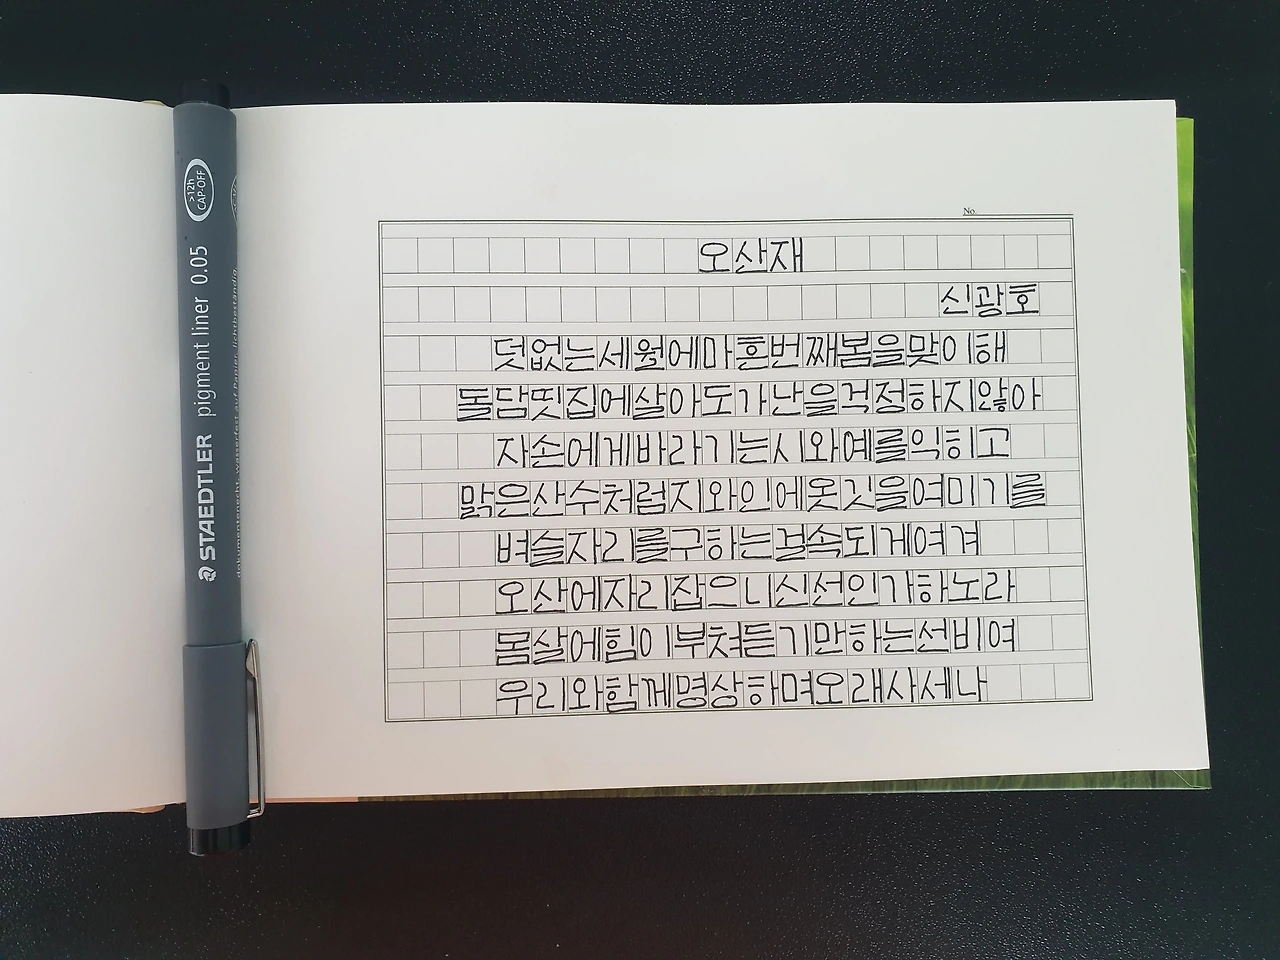 No.
오산재
신광호
덧없는세월에마흔번째봄을맞이해
돌담띳집에살아도가난을걱정하지않아
자손에게바라기는시와예를익히고
맑은산수처럼지와인에옷깃을여미기를
벼슬자리를구하는걸속되게여겨
오산에자리잡으니신선인가하노라
몸살에힘이부쳐듣기만하는선비여
우리와함께명상하며오래사세나
STAEDTLER pigment liner 0.05
>12h
CAP-OFF
dokumentenecht, wasserfest auf Papier, lichtbeständig